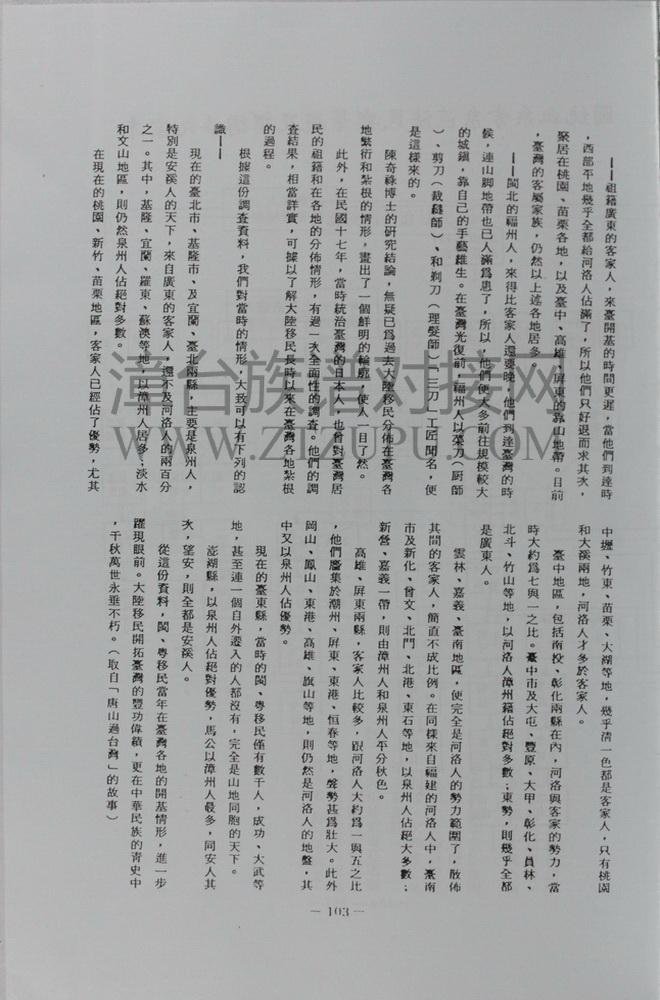 ——祖籍廣東的客家人，來臺開基的時間更遲，當他們到達時
，西部平地幾乎全部都給河洛人佔滿了，所以他們只好退而求其次，
聚居在桃園、苗栗各地，以及臺中、高雄、屏東的靠山地帶。目前
，臺灣的客屬家族，仍然以上述各地居多。
——閩北的福州人，來得比客家人還要晚，他們到達臺灣的時
候，連山脚地帶也已人滿爲患了，所以，他們便大多前往規模較大
的城鎮，靠自己的手藝維生。在臺灣光復前，福州人以菜刀（厨師
）、剪刀（裁縫師）、和剃刀（理髮師）「三刀」工匠聞名，便
是這樣來的。
陳奇祿博士的研究結論，無疑已爲過去大陸移民分佈在臺灣各
地繁衍和紮根的情形，畫出了一個鮮明的輪廓，使人一目了然。
此外，在民國十七年，當時統治臺灣的日本人，也曾對臺灣居
民的祖籍和在各地的分佈情形，有過一次全面性的調查。他們的調
查結果，相當詳實，可據以了解大陸移民長時以來在臺灣各地紮根
的過程。
根據這份調查資料，我們對當時的情形，大致可以有下列的認
識——
現在的臺北市、基隆市、及宜蘭、臺北兩縣，主要是泉州人，
特別是安溪人的天下，來自廣東的客家人，還不及河洛人的兩百分
之一。其中，基隆、宜蘭、羅東、蘇澳等地，以漳州人居多；淡水
和文山地區，則仍然泉州人佔絕對多數。
在現在的桃園、新竹、苗栗地區，客家人已經佔了優勢，尤其
中壢、竹東、苗栗、大湖等地，幾乎清一色都是客家人，只有桃園
和大溪兩地，河洛人才多於客家人。
臺中地區，包括南投、彰化兩縣在內，河洛與客家的勢力，當
時大約爲七與一之比。臺中市及大屯、豐原、大甲、彰化、員林、
北斗、竹山等地，以河洛人漳州籍佔絕對多數；東勢，則幾乎全部
是廣東人。
雲林、嘉義、臺南地區，便完全是河洛人的勢力範圍了，散佈
其間的客家人，簡直不成比例。在同樣來自福建的河洛人中，臺南
市及新化、曾文、北門、北港、東石等地，以泉州人佔絕大多數；
新營、嘉義一帶，則由漳州人和泉州人平分秋色。
高雄、屏東兩縣，客家人比較多，跟河洛人大約爲一與五之比
，他們麕集於潮州、屏東、東港、恒春等地，聲勢甚爲壯大。此外
岡山、鳳山、東港、高雄、旗山等地，則仍然是河洛人的地盤，其
中又以泉州人佔優勢。
現在的臺東縣，當時的閩、粤移民僅有數千人，成功、大武等
地，甚至連一個自外遷入的人都沒有，完全是山地同胞的天下。
澎湖縣，以泉州人佔絕對優勢，馬公以漳州人最多，同安人其
次，望安，則全都是安溪人。
從這份資料，閩、粤移民當年在臺灣各地的開基情形，進一步
躍現眼前。大陸移民開拓臺灣的豐功偉績，更在中華民族的青史中
，千秋萬世永垂不朽。（取自「唐山過台灣」的故事）
— 103 —
漳台族谱对接网
WWW.ZTZUPU.COM